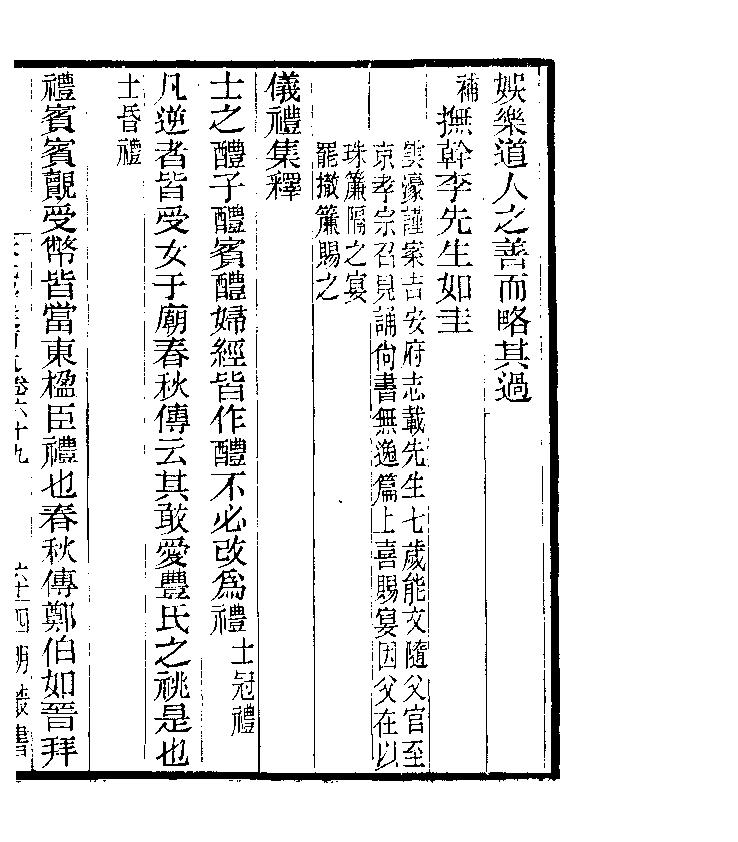 娛樂道人之善而略其過
補撫幹李先生如圭
雲濠謹案吉安府志載先生七歲能文隨父官至
京孝宗召見誦尚書無逸篇上喜賜宴因父在以
珠簾隔之宴
罷撤簾賜之
儀禮集釋
士之醴子醴賓醴婦經皆作醴不必改爲禮士冠禮
凡逆者皆受女于廟春秋傳云其敢愛豐氏之祧是也
士昏禮
禮賓賓覿受幣皆當東楹臣禮也春秋傳鄭伯如晉拜
卷六十九 六十四明叢書